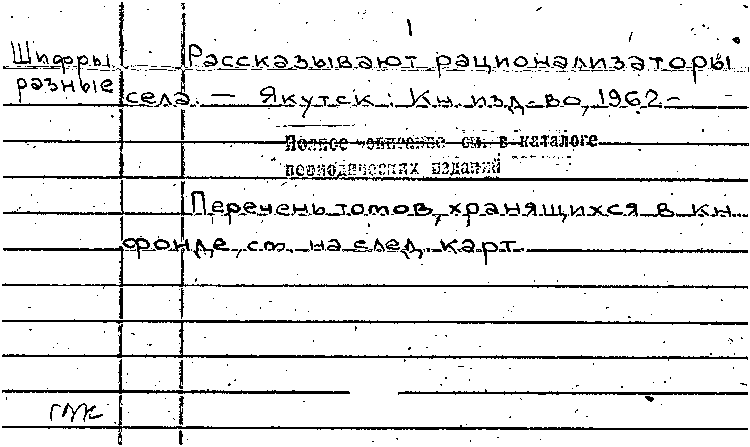 1
Шифры разные
Рассказывают рационализаторы
села. — Якутск: Кн. изд-во, 1962-
Полное описание см. в каталоге
периодических изданий
Перечень томов, хранящихся в кн.
фонде, см. на след. карт.